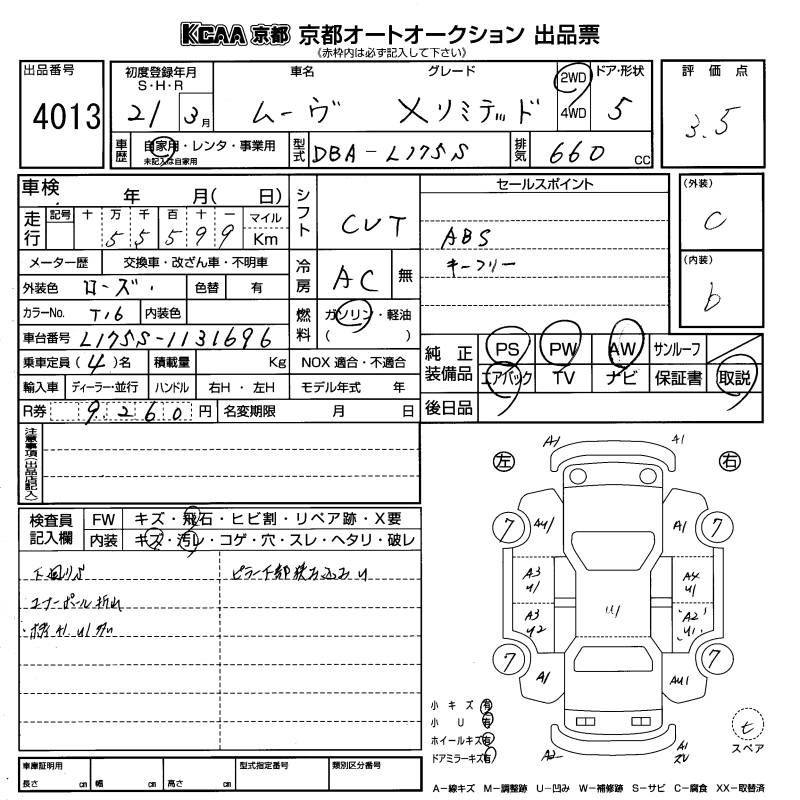 KCAA 京都 京都オートオークション 出品票
《赤枠内は必ず記入して下さい》
出品番号 4013
初度登録年月 S・H・R 21 3月
車名 ムーヴ
グレード Xリミテッド
2WD 4WD
ドア・形状 5
評価点 3.5
車歴 自家用・レンタ・事業用 未記入は自家用
型式 DBA-L175S
排気 660 CC
車検 年 月( 日)
走行 記号 十 万 千 百 十 一 マイル Km
5 5 5 9 9
メーター歴 交換車・改ざん車・不明車
外装色 ローズ 色替 有
カラーNo. T16 内装色
車台番号 L175S-1131696
乗車定員 (4)名 積載量 Kg NOX 適合・不適合
輸入車 ディーラー・並行 ハンドル 右H・左H モデル年式 年
R券 9,260 円 名変期限 月 日
シフト CVT
冷房 AC 無
燃料 ガソリン・軽油 ( )
セールスポイント
ABS
キーフリー
(外装) C
(内装) b
純正装備品 PS PW AW サンルーフ
エアバック TV ナビ 保証書 取説
後日品
注意事項(出品店記入)
検査員記入欄 FW キズ・飛石・ヒビ割・リペア跡・X要
内装 キズ・汚レ・コゲ・穴・スレ・ヘタリ・破レ
下回りサビ
コーナーポール折れ
左 右
A1 A1
7 A41 A1 7
A3 U1 A4 U1
A3 U2 U1 A2 U1
7 A1 AU1 7
A2 A1
小キズ 有
小U 有
ホイールキズ 有
ドアミラーキズ 有
t スペア
車庫証明用 長さ cm 幅 cm 高さ cm 型式指定番号 類別区分番号
A-線キズ M-調整跡 U-凹み W-補修跡 S-サビ C-腐食 XX-取替済